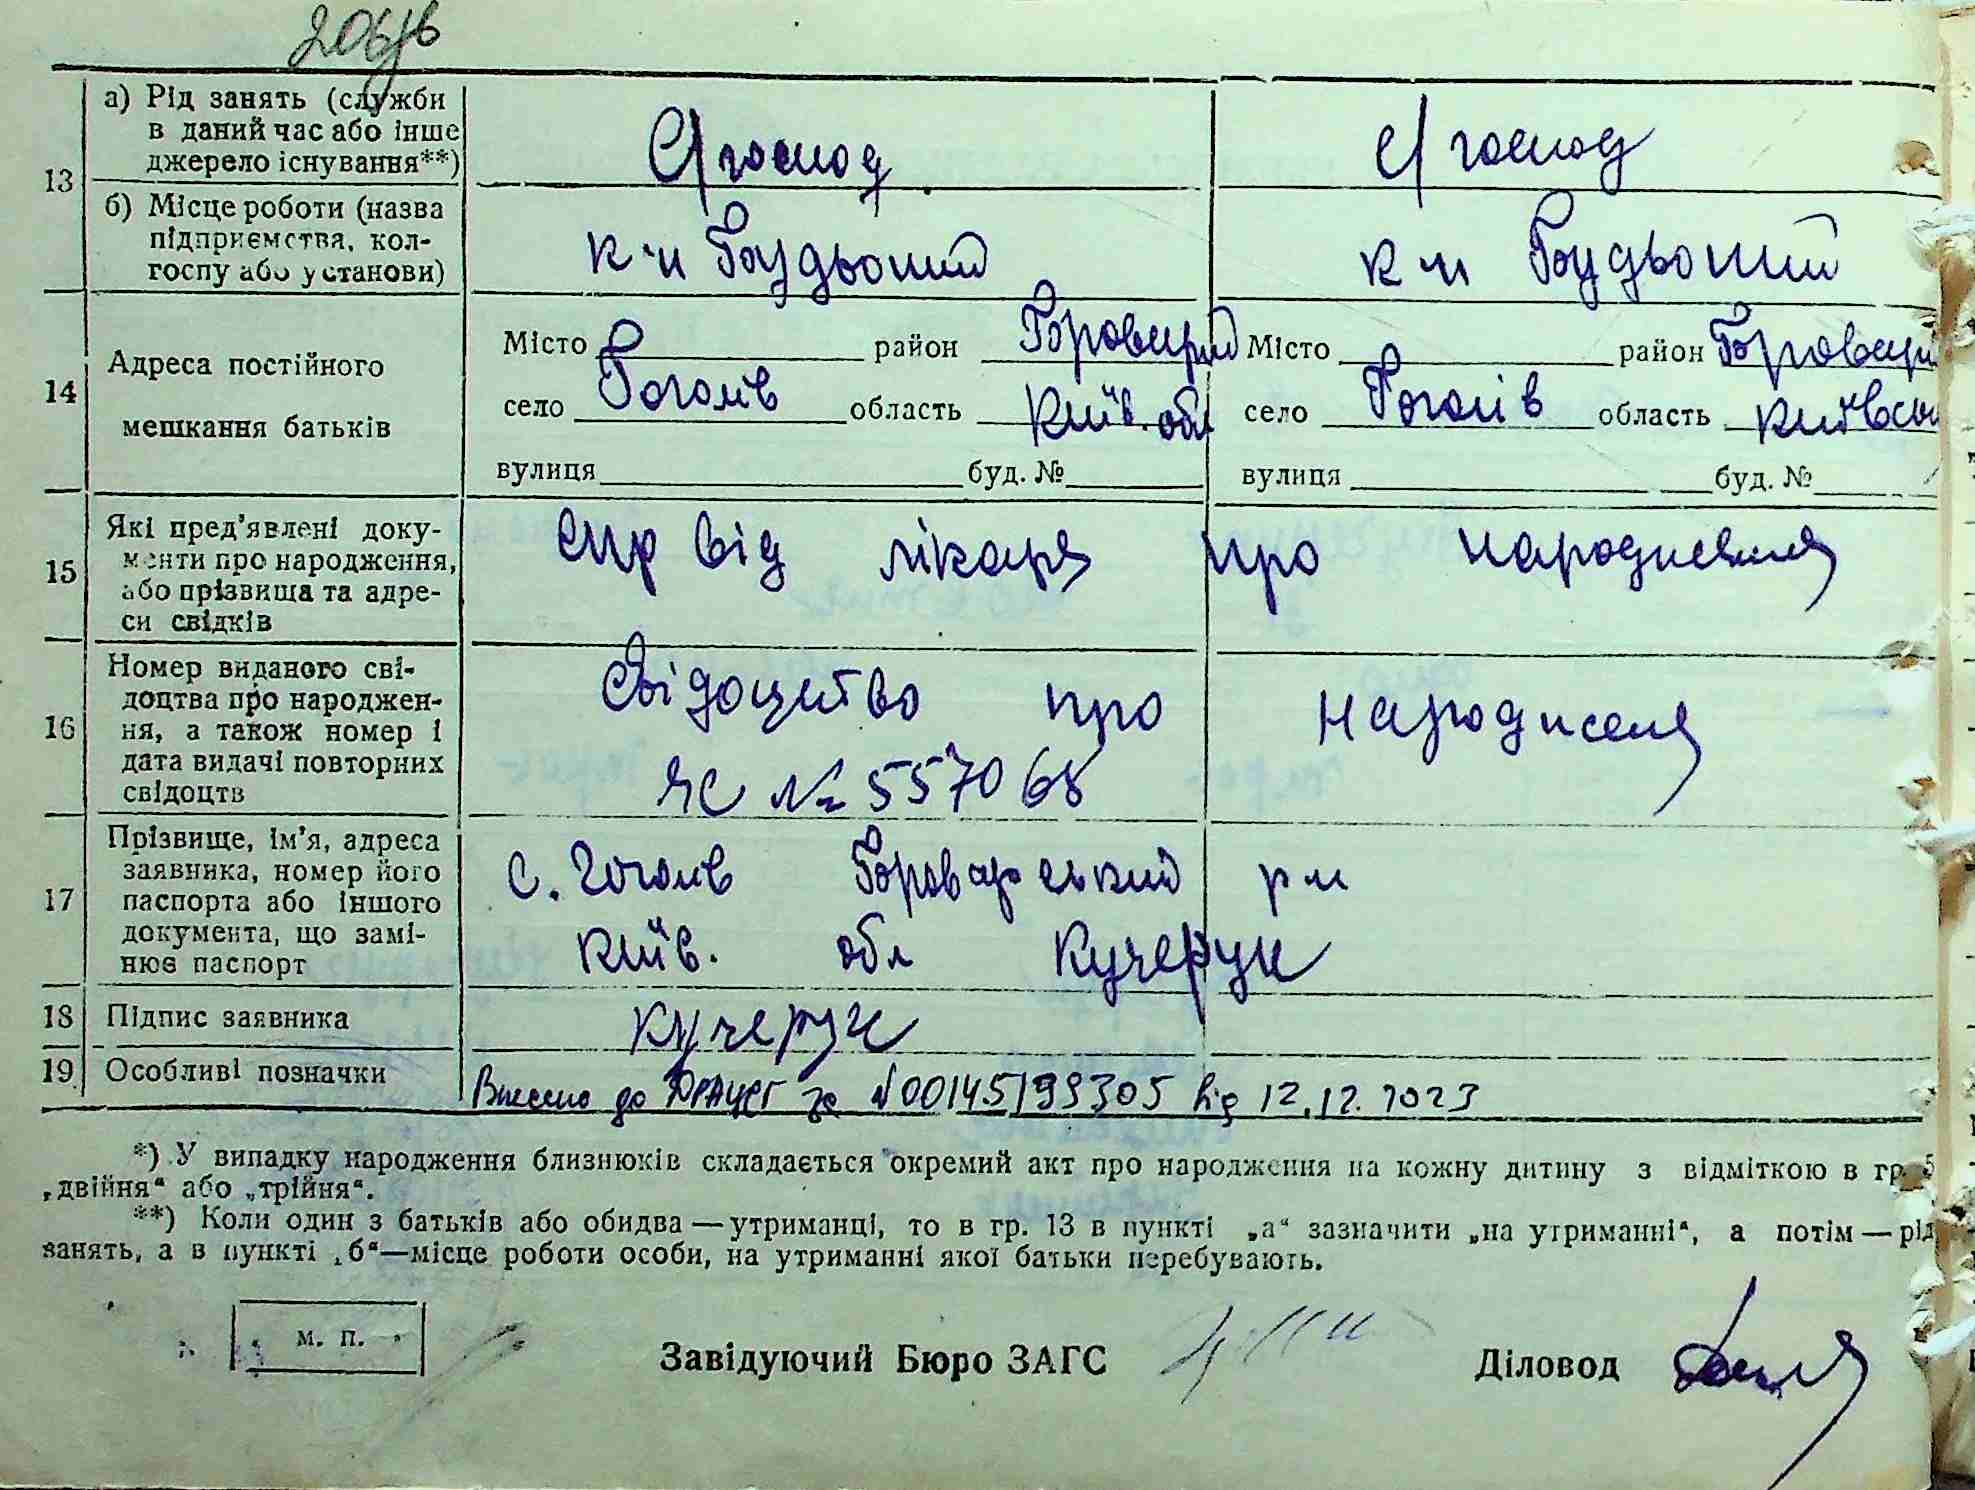 206/в
13
а) Рід занять (служби
в даний час або інше
джерело існування**)
С/господ
с/господ
б) Місце роботи (назва
підприємства, кол-
госпу або установи)
к-п Будьоний
к-п Будьоний
14
Адреса постійного
мешкання батьків
Місто район Броварський Місто район Бровар
село Гоголів область Київ. обл село Гоголів область Київськ
вулиця буд. № вулиця буд. №
15
Які пред'явлені доку-
менти про народження,
або прізвища та адре-
си свідків
спр від лікаря про народження
16
Номер виданого сві-
доцтва про народжен-
ня, а також номер і
дата видачі повторних
свідоцтв
Свідоцтво про народження
ЯС № 557068
17
Прізвище, ім'я, адреса
заявника, номер його
паспорта або іншого
документа, що замі-
нює паспорт
с. Гоголів Броварський р-н
Київ. обл Кучерук
18
Підпис заявника
Кучерук
19
Особливі позначки
Внесено до ДРАЦСГ за №00145199305 від 12.12.2023
*) У випадку народження близнюків складається окремий акт про народження на кожну дитину з відміткою в гр. 5
„двійня“ або „трійня“.
**) Коли один з батьків або обидва — утриманці, то в гр. 13 в пункті „а“ зазначити „на утриманні“, а потім — рід
занять, а в пункті „б“—місце роботи особи, на утриманні якої батьки перебувають.
м. п.
Завідуючий Бюро ЗАГС
Діловод